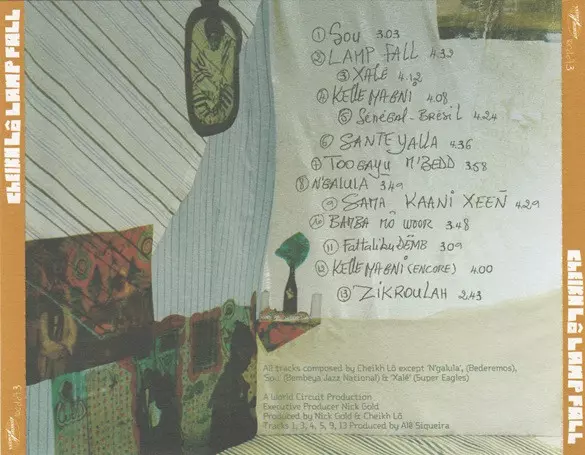 CHEIKH LÔ LAMP FALL
① SOU 3.03
② LAMP FALL 4.32
③ XALÉ 4.12
④ KELLE MAGNI 4.08
⑤ Sénégal-Brésil 4.24
⑥ SANTE YALLA 4.36
⑦ TOOGAYU M'BEDD 3.58
⑧ N'GALULA 3.49
⑨ SAMA KAANI XEEÑ 4.29
⑩ BAMBA MÔ WOOR 3.48
⑪ Fattaliku DËMB 3.09
⑫ KELLE MAGNI (ENCORE) 4.00
⑬ ZIKROULAH 2.43
All tracks composed by Cheikh Lô except 'N'galula', (Bederemos),
'Sou' (Bembeya Jazz National) & 'Xalé' (Super Eagles)
A World Circuit Production
Executive Producer Nick Gold
Produced by Nick Gold & Cheikh Lô
Tracks 1, 3, 4, 5, 9, 13 Produced by Alê Siqueira
CHEIKH LÔ LAMP FALL